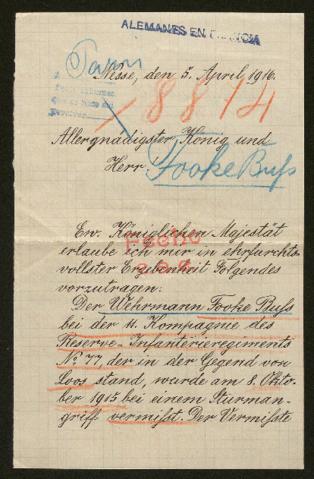 ALEMANES EN FRANCIA
Nesse, den 5. April 1916.
8814
Allergnädigster König und
Herr
Fooke Buss
Ew. Königlichen Majestät
erlaube ich mir in ehrfurchts-
vollster Ergebenheit Folgendes
vorzutragen.
Der Wehrmann Fooke Buss
bei der 11. Kompagnie des
Reserve-Infanterieregiments
No 77, der in der Gegend von
Loos stand, wurde am 8. Okto-
ber 1915 bei einem Sturman-
griff vermisst. Der Vermisste